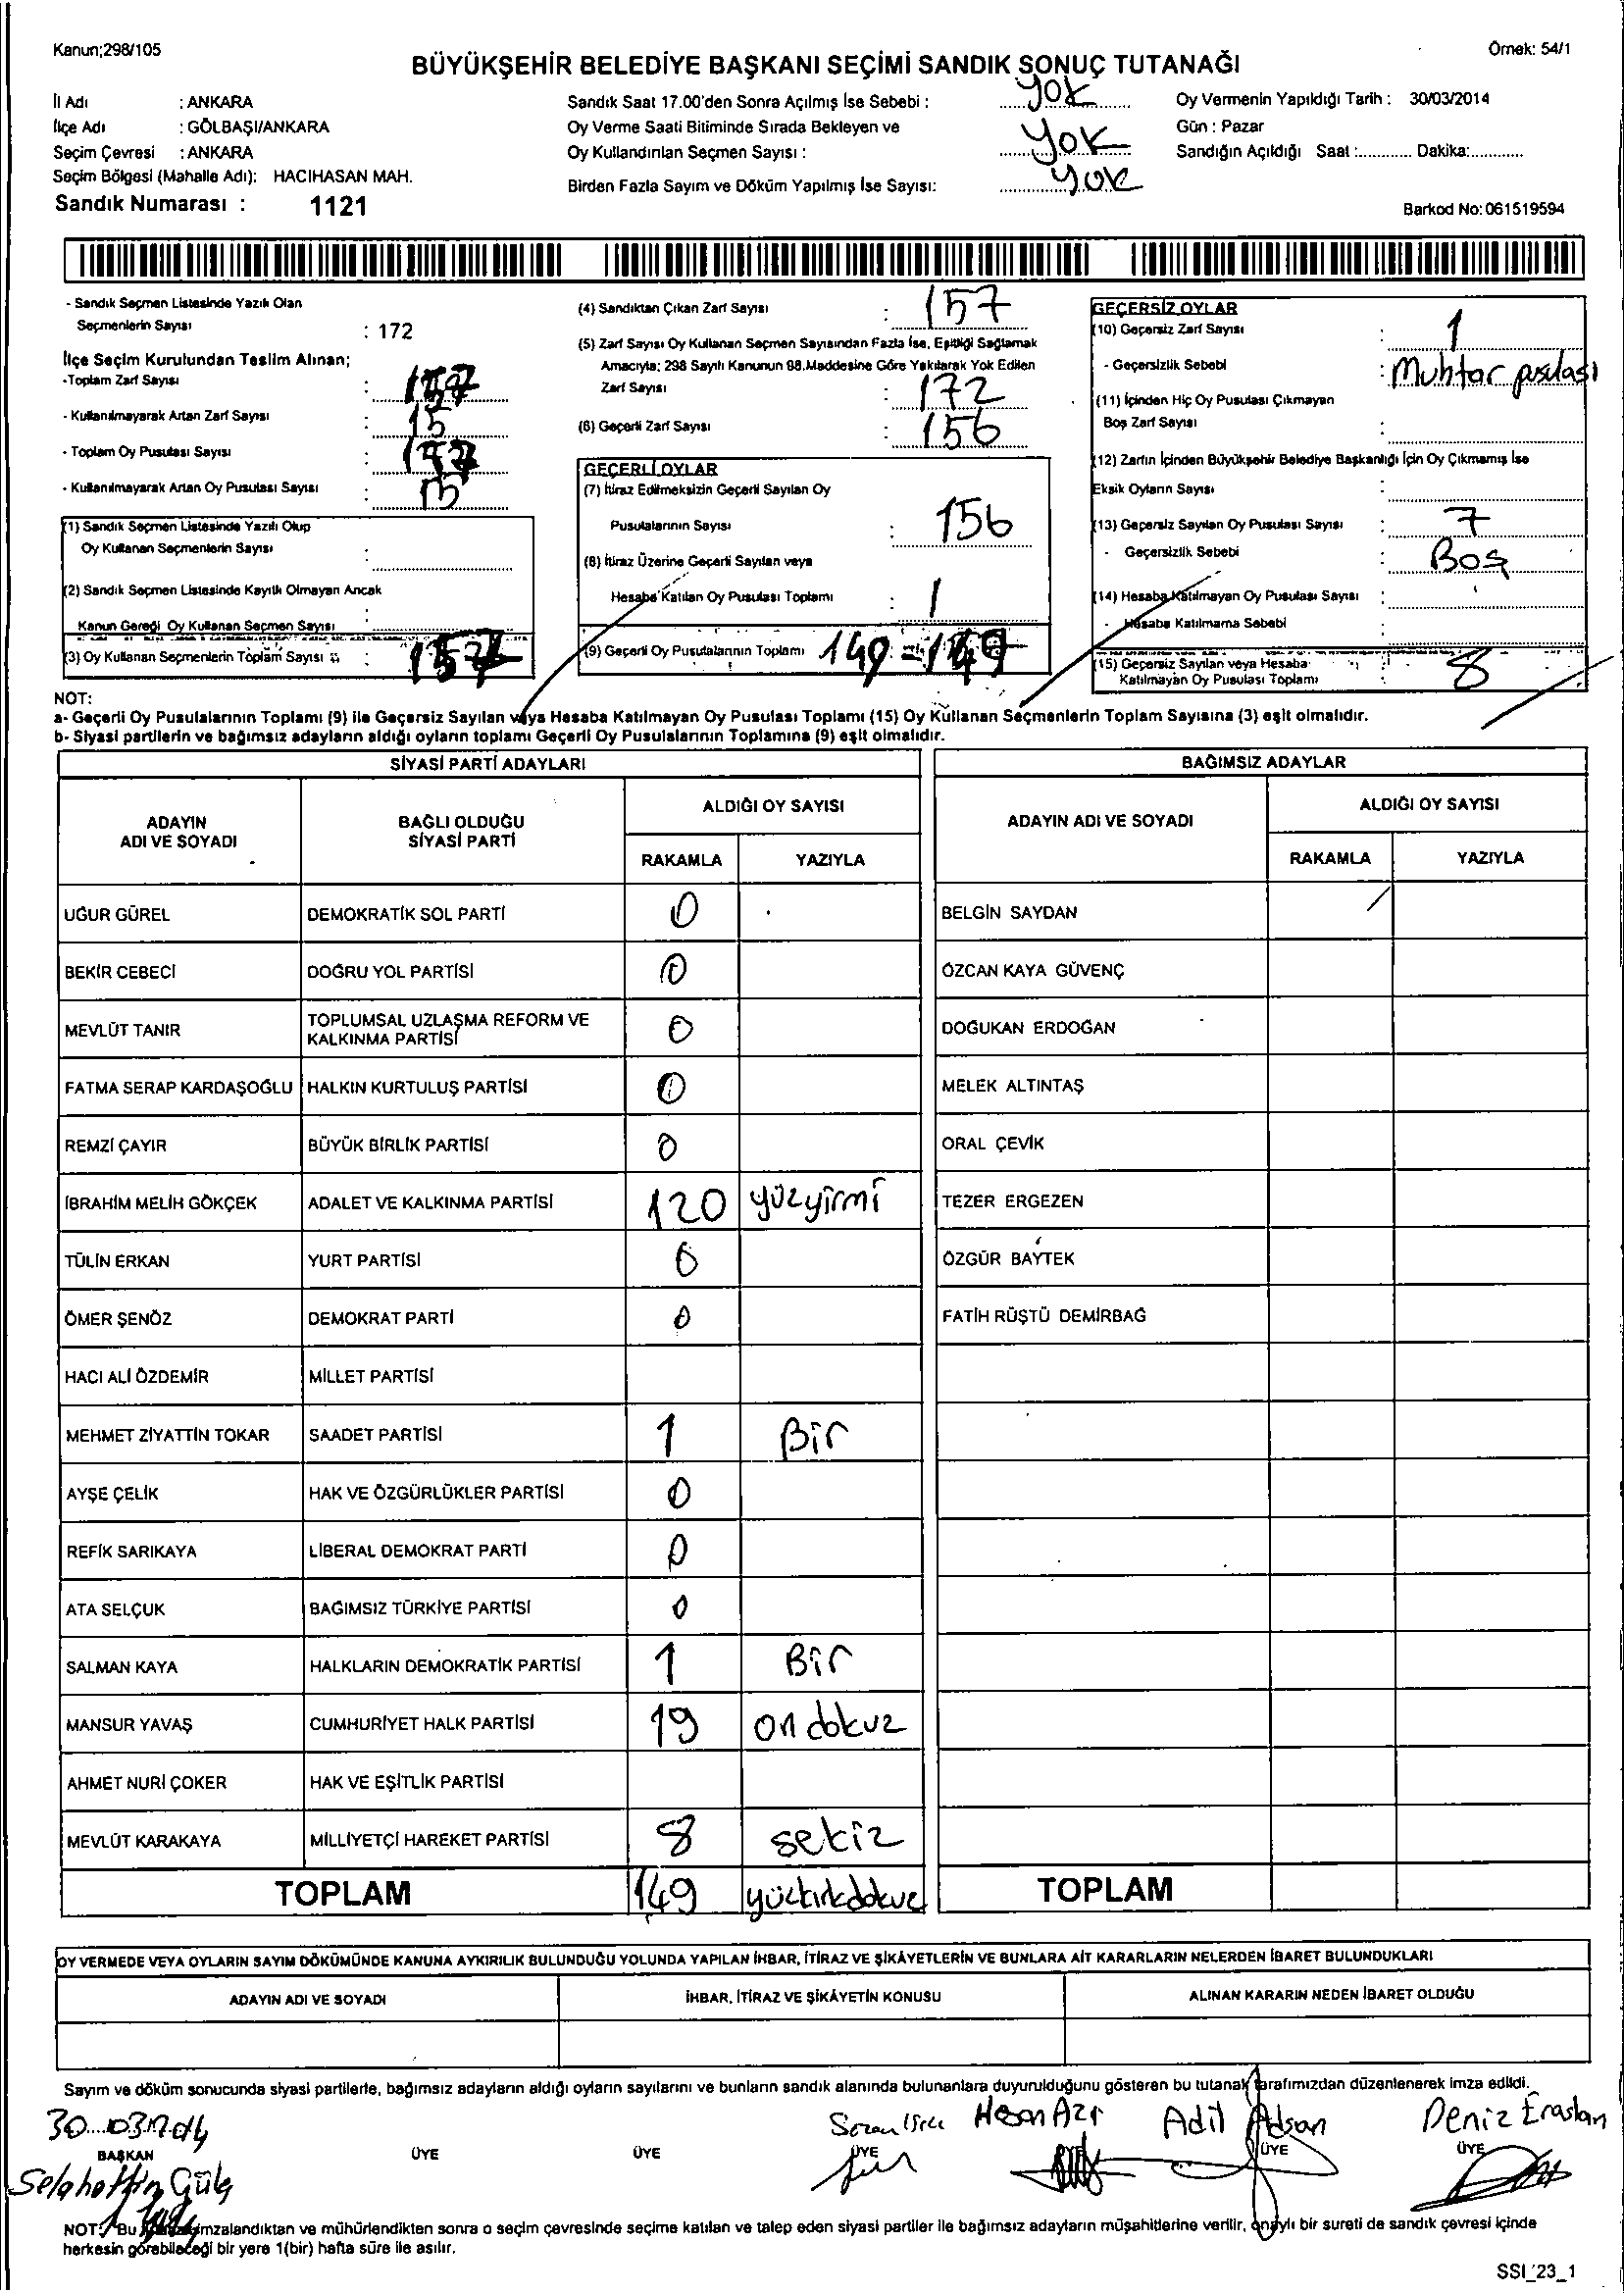 Kanun;298/105
Örnek: 54/1
BÜYÜKŞEHİR BELEDİYE BAŞKANI SEÇİMİ SANDIK SONUÇ TUTANAĞI
İl Adı : ANKARA
İlçe Adı : GÖLBAŞI/ANKARA
Seçim Çevresi : ANKARA
Seçim Bölgesi (Mahalle Adı): HACIHASAN MAH.
Sandık Numarası : 1121
Sandık Saat 17.00'den Sonra Açılmış İse Sebebi : Yok
Oy Verme Saati Bitiminde Sırada Bekleyen ve
Oy Kullandırılan Seçmen Sayısı : Yok
Birden Fazla Sayım ve Döküm Yapılmış İse Sayısı: Yok
Oy Vermenin Yapıldığı Tarih : 30/03/2014
Gün : Pazar
Sandığın Açıldığı Saat :............ Dakika:............
Barkod No: 061519594
- Sandık Seçmen Listesinde Yazılı Olan
Seçmenlerin Sayısı : 172
İlçe Seçim Kurulundan Teslim Alınan;
-Toplam Zarf Sayısı :
- Kullanılmayarak Artan Zarf Sayısı : 15
- Toplam Oy Pusulası Sayısı :
- Kullanılmayarak Artan Oy Pusulası Sayısı : 15
(1) Sandık Seçmen Listesinde Yazılı Olup
Oy Kullanan Seçmenlerin Sayısı :
(2) Sandık Seçmen Listesinde Kayıtlı Olmayan Ancak
Kanun Gereği Oy Kullanan Seçmen Sayısı :
(3) Oy Kullanan Seçmenlerin Toplam Sayısı : 157
(4) Sandıktan Çıkan Zarf Sayısı : 157
(5) Zarf Sayısı Oy Kullanan Seçmen Sayısından Fazla İse, Eşitliği Sağlamak
Amacıyla; 298 Sayılı Kanunun 98.Maddesine Göre Yakılarak Yok Edilen
Zarf Sayısı : 172
(6) Geçerli Zarf Sayısı : 156
GEÇERLİ OYLAR
(7) İtiraz Edilmeksizin Geçerli Sayılan Oy
Pusulalarının Sayısı : 156
(8) İtiraz Üzerine Geçerli Sayılan veya
Hesaba Katılan Oy Pusulası Toplamı : 1
(9) Geçerli Oy Pusulalarının Toplamı : 149 - 149
GEÇERSİZ OYLAR
(10) Geçersiz Zarf Sayısı : 1
- Geçersizlik Sebebi : Muhtar pusulası
(11) İçinden Hiç Oy Pusulası Çıkmayan
Boş Zarf Sayısı :
(12) Zarfın İçinden Büyükşehir Belediye Başkanlığı İçin Oy Çıkmamış İse
Eksik Oyların Sayısı :
(13) Geçersiz Sayılan Oy Pusulası Sayısı : 7
- Geçersizlik Sebebi : Boş
(14) Hesaba Katılmayan Oy Pusulası Sayısı :
- Hesaba Katılmama Sebebi
(15) Geçersiz Sayılan veya Hesaba
Katılmayan Oy Pusulası Toplamı : 8
NOT:
a- Geçerli Oy Pusulalarının Toplamı (9) ile Geçersiz Sayılan veya Hesaba Katılmayan Oy Pusulası Toplamı (15) Oy Kullanan Seçmenlerin Toplam Sayısına (3) eşit olmalıdır.
b- Siyasi partilerin ve bağımsız adayların aldığı oyların toplamı Geçerli Oy Pusulalarının Toplamına (9) eşit olmalıdır.
SİYASİ PARTİ ADAYLARI
ADAYIN ADI VE SOYADI
BAĞLI OLDUĞU SİYASİ PARTİ
ALDIĞI OY SAYISI
RAKAMLA YAZIYLA
UĞUR GÜREL DEMOKRATİK SOL PARTİ 0
BEKİR CEBECİ DOĞRU YOL PARTİSİ 0
MEVLÜT TANIR TOPLUMSAL UZLAŞMA REFORM VE KALKINMA PARTİSİ 0
FATMA SERAP KARDAŞOĞLU HALKIN KURTULUŞ PARTİSİ 0
REMZİ ÇAYIR BÜYÜK BİRLİK PARTİSİ 0
İBRAHİM MELİH GÖKÇEK ADALET VE KALKINMA PARTİSİ 120 yüzyirmi
TÜLİN ERKAN YURT PARTİSİ 0
ÖMER ŞENÖZ DEMOKRAT PARTİ 0
HACI ALİ ÖZDEMİR MİLLET PARTİSİ
MEHMET ZİYATTİN TOKAR SAADET PARTİSİ 1 Bir
AYŞE ÇELİK HAK VE ÖZGÜRLÜKLER PARTİSİ 0
REFİK SARIKAYA LİBERAL DEMOKRAT PARTİ 0
ATA SELÇUK BAĞIMSIZ TÜRKİYE PARTİSİ 0
SALMAN KAYA HALKLARIN DEMOKRATİK PARTİSİ 1 Bir
MANSUR YAVAŞ CUMHURİYET HALK PARTİSİ 19 on dokuz
AHMET NURİ ÇOKER HAK VE EŞİTLİK PARTİSİ
MEVLÜT KARAKAYA MİLLİYETÇİ HAREKET PARTİSİ 8 sekiz
TOPLAM 149 yüzkırkdokuz
BAĞIMSIZ ADAYLAR
ADAYIN ADI VE SOYADI
ALDIĞI OY SAYISI
RAKAMLA YAZIYLA
BELGİN SAYDAN
ÖZCAN KAYA GÜVENÇ
DOĞUKAN ERDOĞAN
MELEK ALTINTAŞ
ORAL ÇEVİK
TEZER ERGEZEN
ÖZGÜR BAYTEK
FATİH RÜŞTÜ DEMİRBAĞ
TOPLAM
OY VERMEDE VEYA OYLARIN SAYIM DÖKÜMÜNDE KANUNA AYKIRILIK BULUNDUĞU YOLUNDA YAPILAN İHBAR, İTİRAZ VE ŞİKÂYETLERİN VE BUNLARA AİT KARARLARIN NELERDEN İBARET BULUNDUKLARI
ADAYIN ADI VE SOYADI İHBAR, İTİRAZ VE ŞİKÂYETİN KONUSU ALINAN KARARIN NEDEN İBARET OLDUĞU
Sayım ve döküm sonucunda siyasi partilerle, bağımsız adayların aldığı oyların sayılarını ve bunların sandık alanında bulunanlara duyurulduğunu gösteren bu tutanak tarafımızdan düzenlenerek imza edildi.
Hasan Adil Deniz Eraslan
BAŞKAN ÜYE ÜYE ÜYE ÜYE ÜYE
Selahattin
NOT: Bu imzalandıktan ve mühürlendikten sonra o seçim çevresinde seçime katılan ve talep eden siyasi partiler ile bağımsız adayların müşahitlerine verilir, onaylı bir sureti de sandık çevresi içinde
herkesin görebileceği bir yere 1(bir) hafta süre ile asılır.
SSI_23_1